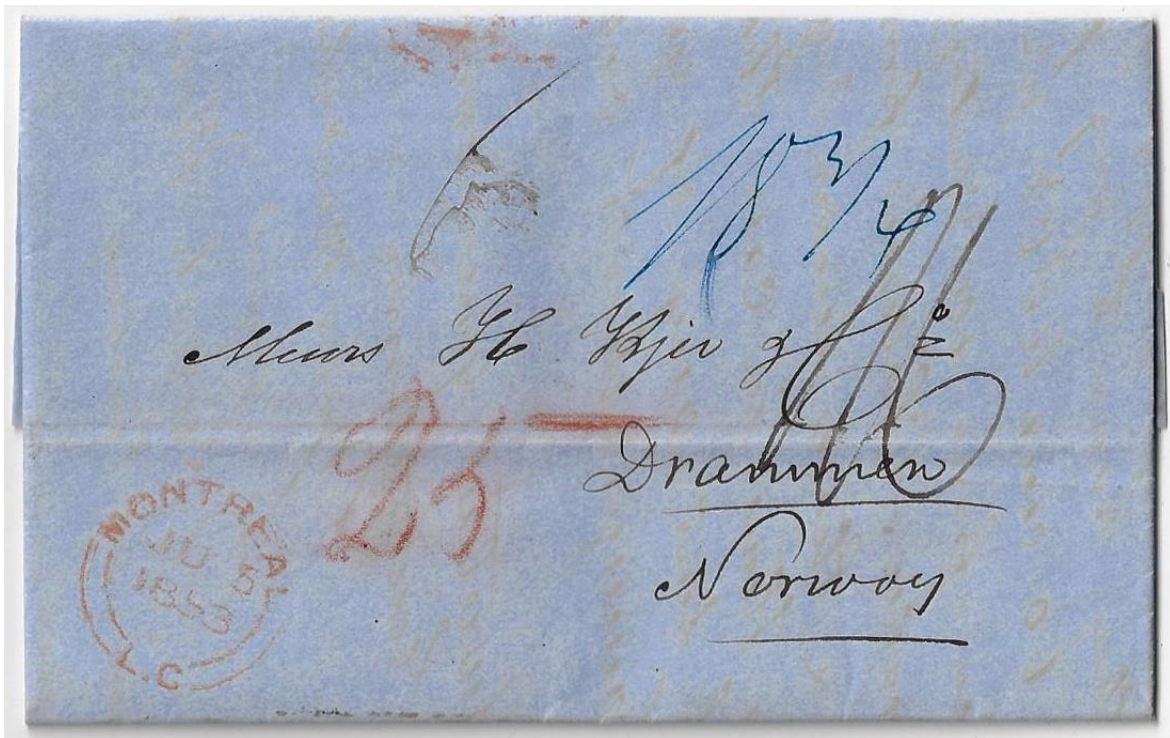 18 3/4
Messrs H Kjer & Co
25
Drammen
Norway
MONTREAL
JU 5
1853
L.C